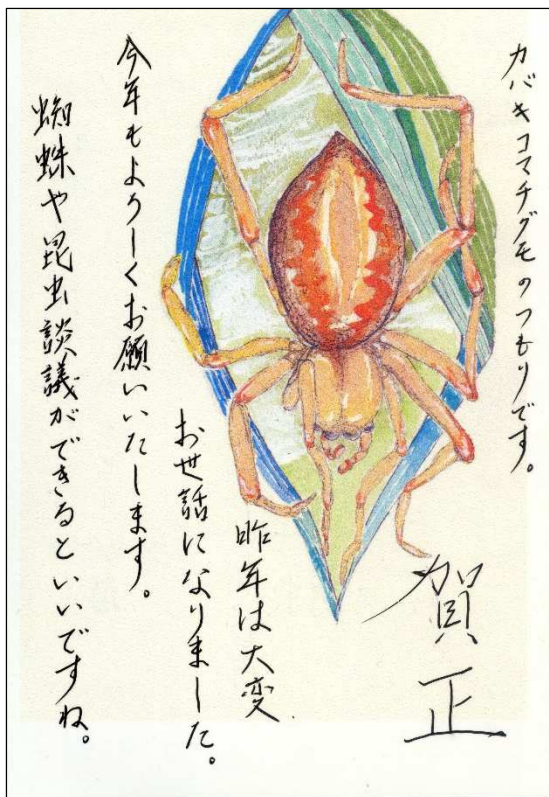 カバキコマチグモのつもりです。
賀正
昨年は大変
お世話になりました。
今年もよろしくお願いいたします。
蜘蛛や昆虫談議ができるといいですね。